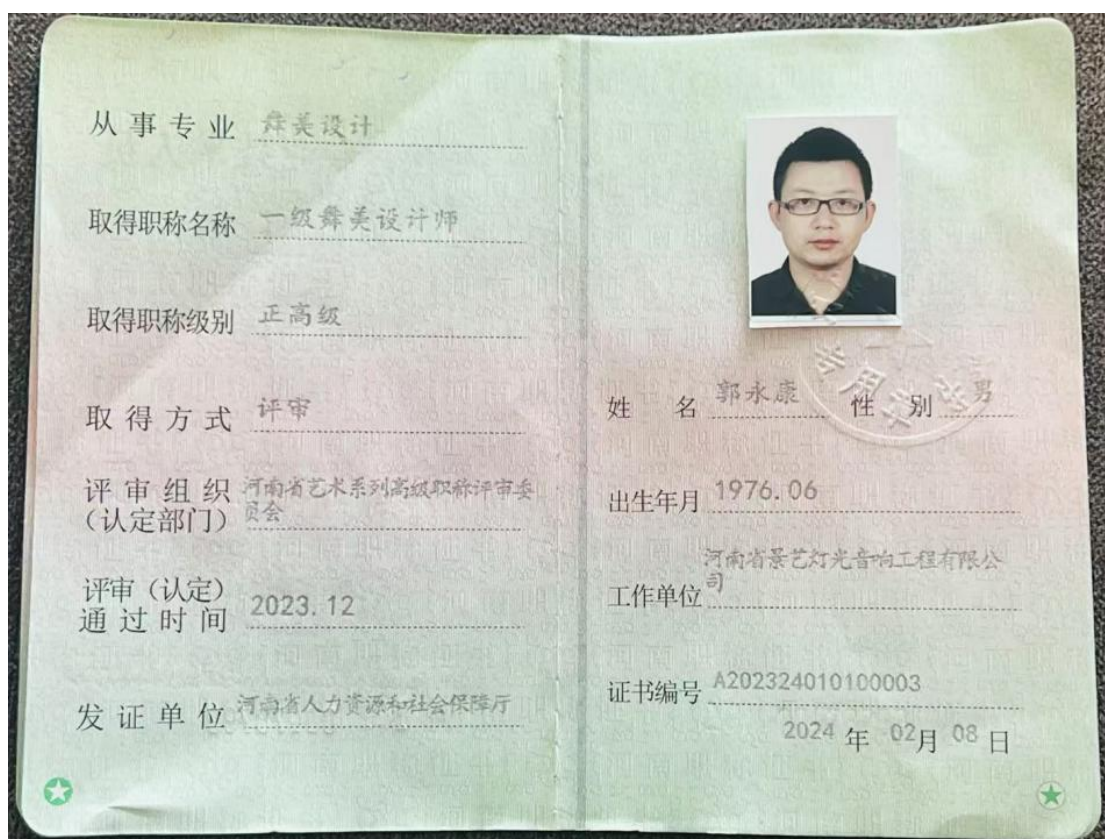 从事专业 舞美设计
取得职称名称 一级舞美设计师
取得职称级别 正高级
取得方式 评审
评审组织 河南省艺术系列高级职称评审委
（认定部门） 员会
评审（认定）
通过时间 2023.12
发证单位 河南省人力资源和社会保障厅
姓名 郭永康 性别 男
出生年月 1976.06
河南省景艺灯光音响工程有限公
工作单位 司
证书编号 A202324010100003
2024 年 02月 08 日